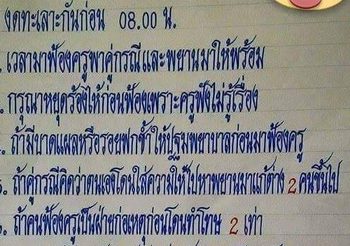 งดทะเลาะกันก่อน 08.00 น.
. เวลามาฟ้องครูพาคู่กรณีและพยานมาให้พร้อม
. กรุณาหยุดร้องไห้ก่อนฟ้องเพราะครูฟังไม่รู้เรื่อง
. ถ้ามีบาดแผลหรือรอยฟกช้ำให้ปฐมพยาบาลก่อนมาฟ้องครู
. ถ้าคู่กรณีคิดว่าตนเองโดนใส่ความให้ไปหาพยานมาแก้ต่าง 2 คนขึ้นไป
. ถ้าคนฟ้องครูเป็นฝ่ายก่อเหตุก่อนโดนทำโทษ 2 เท่า